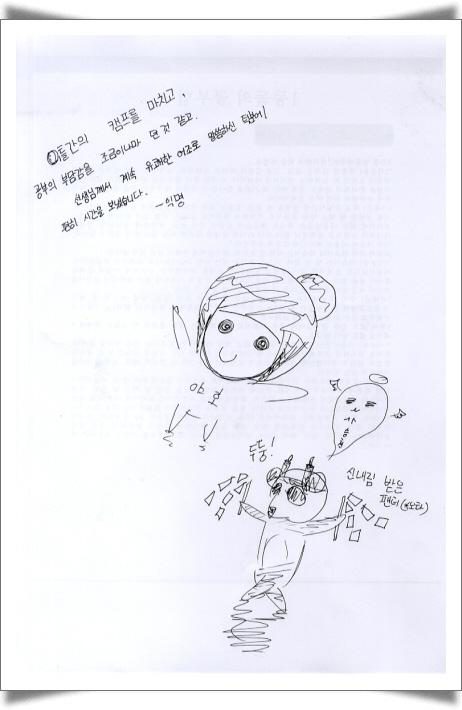 이틀간의 캠프를 마치고,
공부의 부담감을 조금이나마 던 것 같고.
선생님께서 계속 유쾌한 어조로 말씀하신 덕분에
편히 시간을 보냈습니다. -익명
야호
두둥!
신내림 받은
팬더(